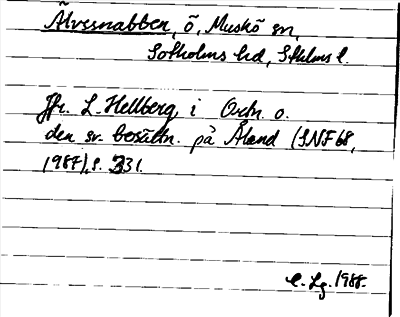 Älvsnabben, ö, Muskö sn,
Sotholms hd, Sthlms l.
Jfr. L. Hellberg i Ortn. o.
den sv. bosättn. på Åland (SNF 68,
1987), s. 231.
C. Lg. 1988.